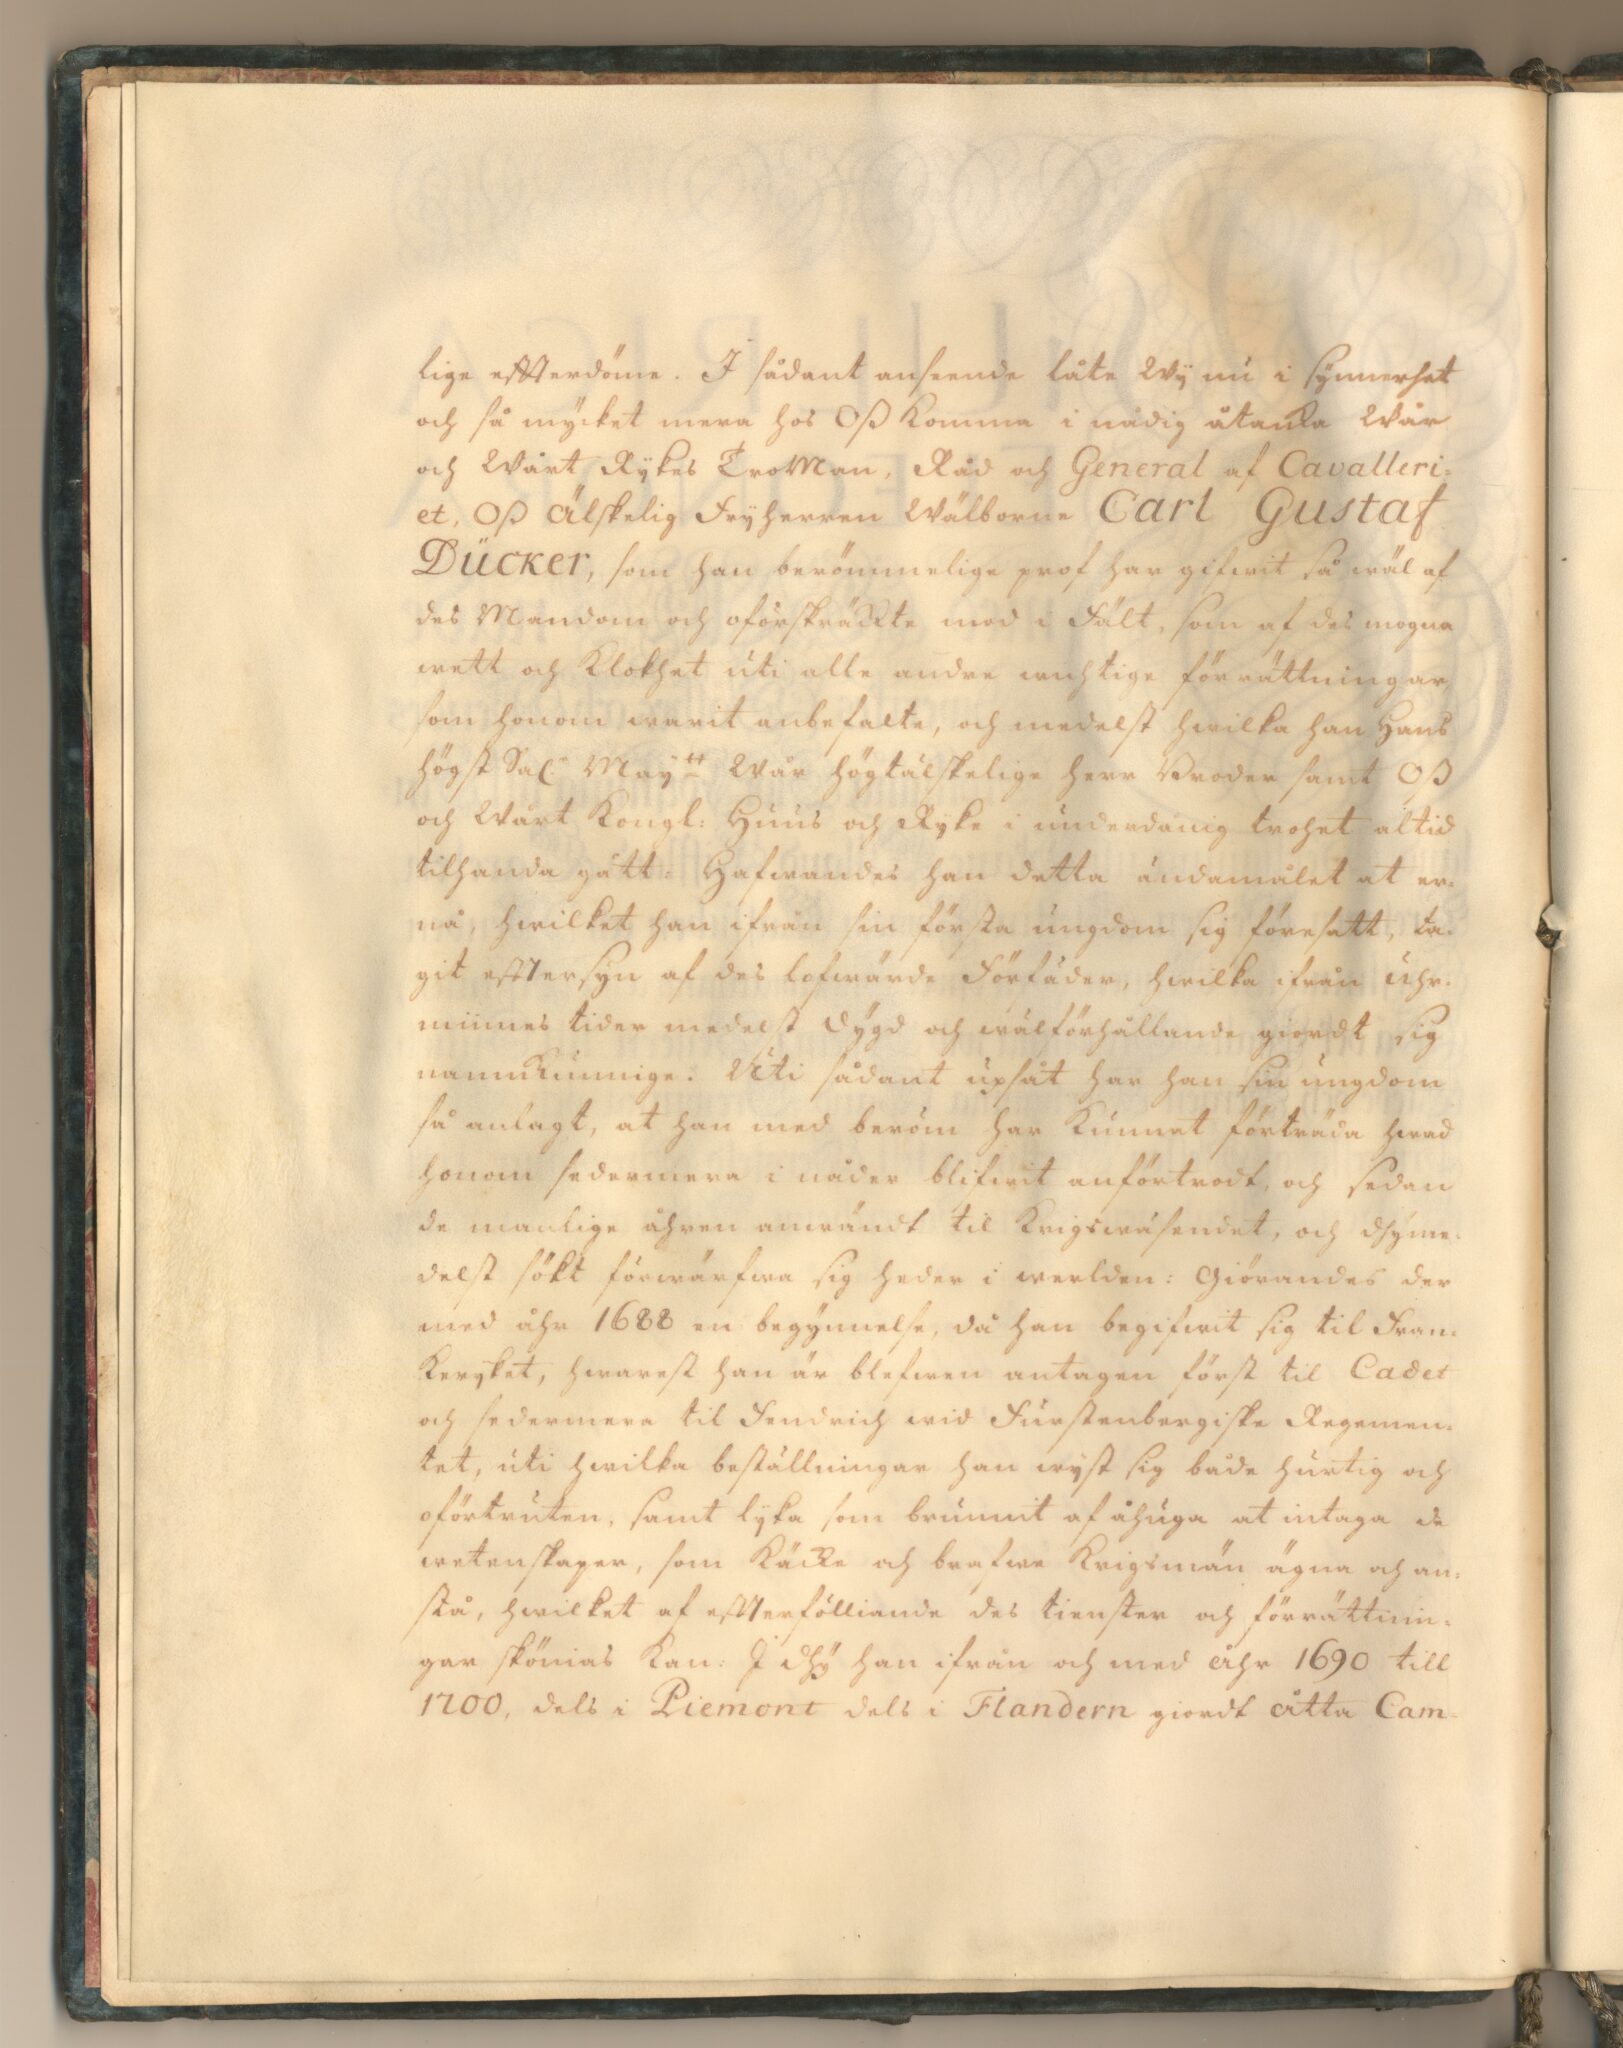 lige effterdöme. I sådant anseende låte Wÿ nu i synnerhet
och så mycket mera hos Oß komma i nådig åtanka Wår
och Wårt Rykes TroMan, Råd och General af Cavalleri-
et, Oß Älskelig Fryherren Wälborne Carl Gustaf
Dücker, som han berömmelige prof har gifwit så wäl af
des Mandom och oförskräckte mod i Fält, som af des mogna
wett och Klokhet uti alle andre wichtige förrättningar,
som honom warit anbefalte, och medelst hwilka han Hans
högst Sal: Maytt Wår högtälskelige herr Broder samt Oß
och Wårt Kongl: Huus och Ryke i underdånig trohet altid
tilhanda gått: Hafwandes han detta ändamålet at er-
nå, hwilket han ifrån sin första ungdom sig föresatt, ta-
git efftersyn af des lofwärde Förfäder, hwilka ifrån uhr-
minnes tider medelst dygd och wälförhållande giordt sig
namnkunnige. Uti sådant upsåt har han sin ungdom
så anlagt, at han med beröm har kunnat förträda hwad
honom sedermera i nåder blifwit anförtrodt, och sedan
de manlige åhren anwändt til Krigswäsendet, och dhÿme-
delst sökt förwärfwa sig heder i werlden: Giörandes der
med åhr 1688 en begynnelse, då han begifwit sig til Fran-
keryket, hwarest han är blefwen antagen först til Cadet
och sedermera til Fendrich wid Furstenbergiske Regemen-
tet, uti hwilka beställningar han wyst sig både hurtig och
oförtruten, samt lyka som brunnit af åhuga at intaga de
wetenskaper, som käcke och brafwe Krigsmän ägna och an-
stå, hwilket af effterfölliande des tienster och förrättnin-
gar skönias kan: I dhÿ han ifrån och med åhr 1690 till
1700, dels i Piemont dels i Flandern giordt åtta Cam-